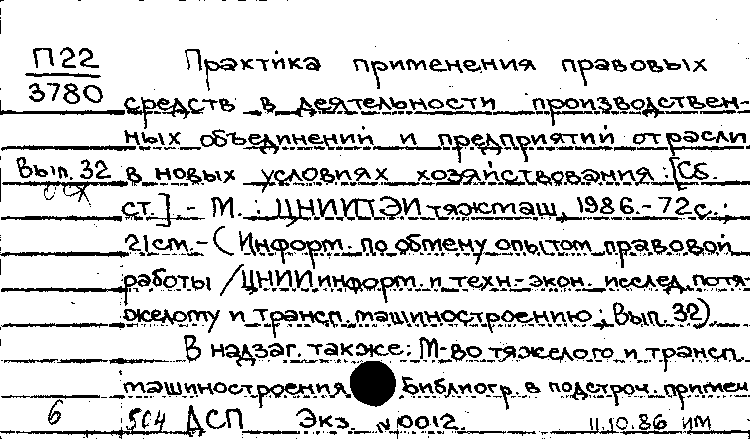 П22 Практика применения правовых
3780 средств в деятельности производствен-
ных объединений и предприятий отрасли
Вып. 32 в новых условиях хозяйствования: [Сб.
ст.]. - М. : ЦНИИТЭИтяжмаш, 1986. - 72с.;
21см. - (Информ. по обмену опытом правовой
работы / ЦНИИинформ. и техн.-экон. исслед. по тя-
желому и трансп. машиностроению; Вып. 32)
В надзаг. также: М-во тяжелого и трансп.
машиностроения Библиогр. в подстроч. примеч
6 504 ДСП Экз. N0012. 11.10.86 ИМ